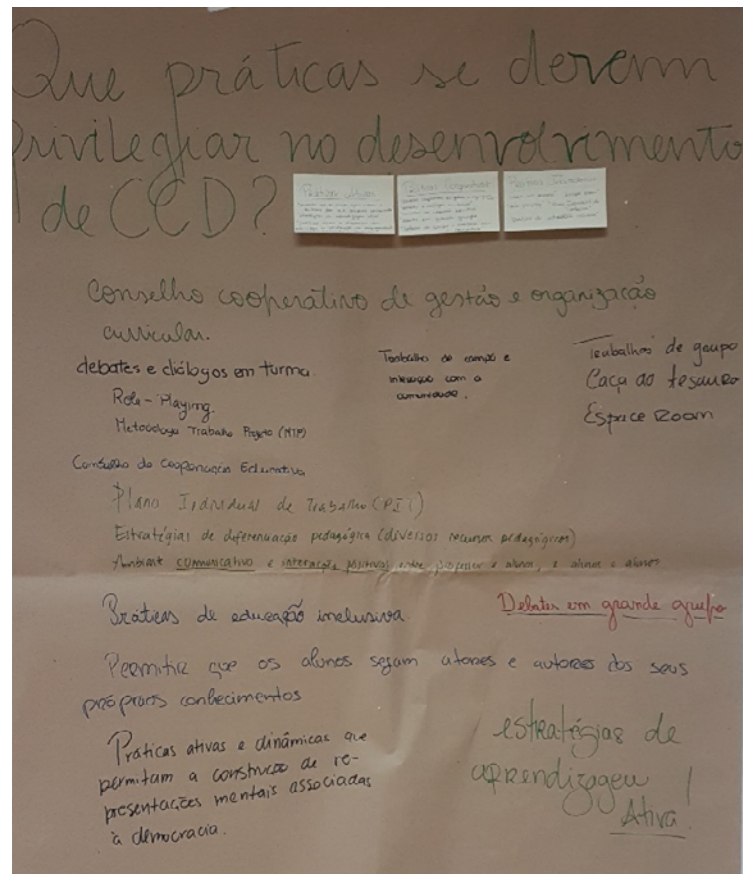 Que práticas se devem
privilegiar no desenvolvimento
de CCD?
Práticas Ativas
Práticas Cooperativas
Conselho cooperativo de gestão e organização
curricular.
debates e diálogos em turma.
Role-Playing.
Metodologia Trabalho Projeto (MTP)
Trabalho de campo e
interação com a
comunidade.
Trabalhos de grupo
Caça ao tesouro
Espace Room
Conselho de Cooperação Educativa
Plano Individual de Trabalho (PIT)
Estratégias de diferenciação pedagógica (diversos recursos pedagógicos)
Ambiente comunicativo e interações positivas entre professor e alunos, e alunos e alunos
Práticas de educação inclusiva.
Debates em grande grupo
Permitir que os alunos sejam atores e autores dos seus
próprios conhecimentos
Práticas ativas e dinâmicas que
permitam a construção de re-
presentações mentais associadas
à democracia.
estratégias de
aprendizagem
Ativa!